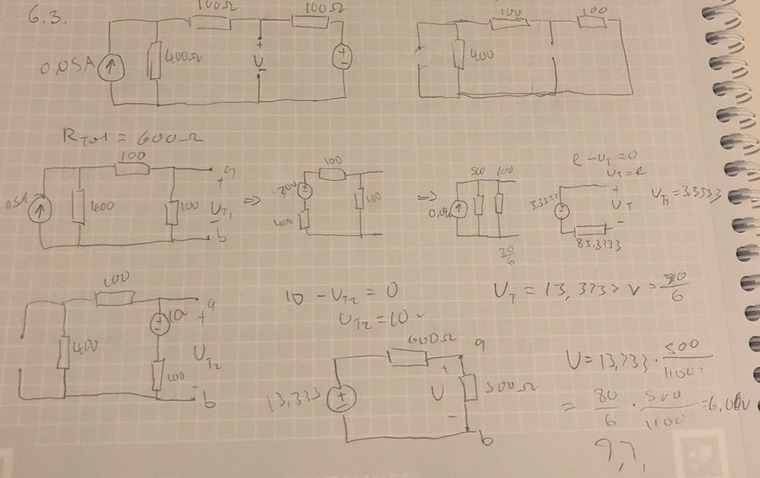 6.3.
100Ω 100Ω
0,05A 400Ω + V -
100 100
400
R_Tot = 600Ω
100 a
400 100 + U_T1 -
b
⇒
100
100
⇒
500 100
e - U_T = 0
U_T = e
+ U_T -
83,3333
U_T1 = 3,3333
100 a
400 100 + U_T2 -
b
10 - U_T2 = 0
U_T2 = 10
U_T = 13,333 V = 80/6
600Ω a
13,333 + U - 500Ω
b
U = 13,333 · 500/1100
= 80/6 · 500/1100 = 6,06V